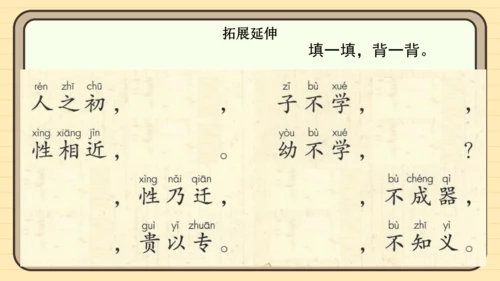 拓展延伸
填一填，背一背。
rén zhī chū zǐ bù xué
人之初，　　　，子不学，　　　，
xìng xiāng jìn yòu bù xué
性相近，　　　。幼不学，　　　？
xìng nǎi qiān bù chéng qì
　　　，性乃迁，　　　，不成器，
guì yǐ zhuān bù zhī yì
　　　，贵以专。　　　，不知义。